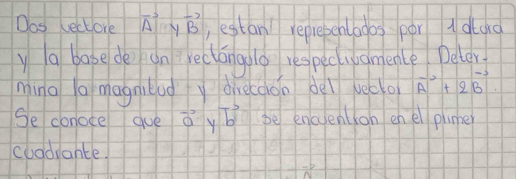 Dos vectore A⃗ y B⃗, estan representados por 1 altura
y la base de un rectángulo respectivamente. Deter-
mina la magnitud y dirección del vector A⃗ + 2B⃗.
Se conoce que a⃗ y b⃗ se encuentran en el primer
cuadrante.